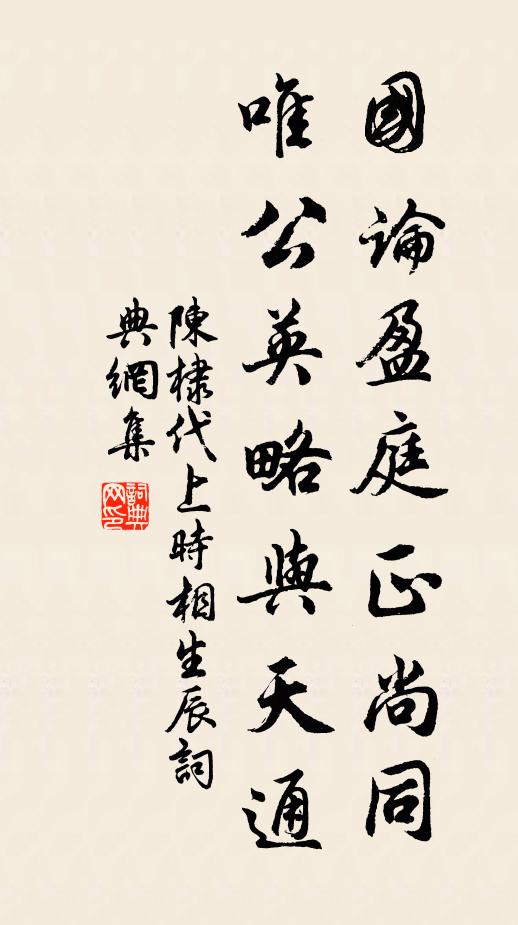 國論盈庭正尚同
唯公英略與天通
陳棣代上時相生辰詞
典網集
詞典網印